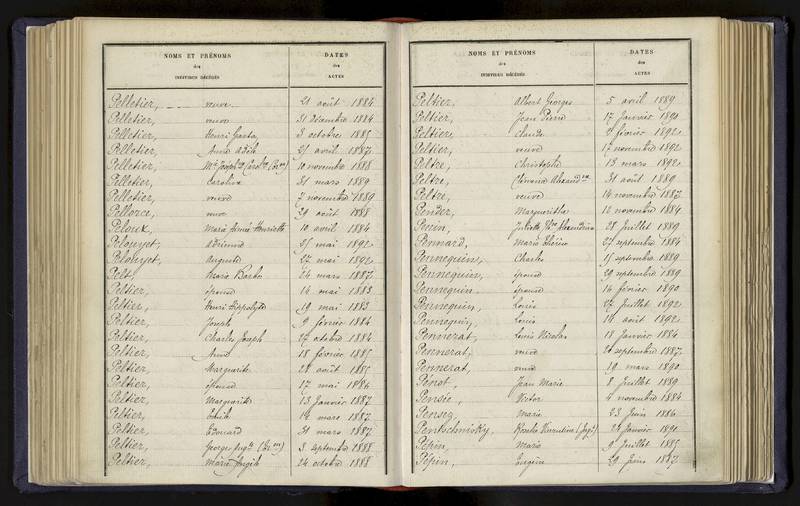 NOMS ET PRÉNOMS
des
INDIVIDUS DÉCÉDÉS
DATES
des
ACTES
Pelletier, veuve 21 août 1884
Pelletier, veuve 31 décembre 1884
Pelletier, Henri 3 octobre 1885
Pelletier, Anne Adèle 21 avril 1887
Pelletier, 10 novembre 1888
Pelletier, Caroline 31 mars 1889
Pelletier, veuve 7 novembre 1889
Pellorce, veuve 29 août 1888
Peloux, Marie Aimée Henriette 10 avril 1884
Pelouyet, Adrienne 25 mai 1892
Pelouyet, Auguste 27 mai 1892
Pelt, Maria Barbe 24 mars 1887
Peltier, épouse 14 mai 1883
Peltier, Henri Hippolyte 19 mai 1883
Peltier, Joseph 9 février 1884
Peltier, Charles Joseph 27 octobre 1884
Peltier, Anne 18 février 1885
Peltier, Marguerite 22 août 1885
Peltier, épouse 17 mai 1886
Peltier, Marguerite 13 Janvier 1887
Peltier, Emile 14 mars 1887
Peltier, Edouard 31 mars 1887
Peltier, George 3 septembre 1888
Peltier, Marie 24 octobre 1888
NOMS ET PRÉNOMS
des
INDIVIDUS DÉCÉDÉS
DATES
des
ACTES
Peltier, Albert Georges 5 avril 1889
Peltier, Jean Pierre 17 Janvier 1890
Peltier, Claude février 1892
Peltier, veuve 17 novembre 1892
Peltre, Christophe 13 mars 1892
Peltre, 31 août 1889
Peltre, veuve 14 novembre 1887
Pender, Margueritha 12 novembre 1884
Penin, Juliette Alexandrine 28 Juillet 1889
Pennard, Marie Thérèse 27 septembre 1884
Pennequin, Charles 15 septembre 1889
Pennequin, épouse 29 septembre 1889
Pennequin épouse 14 février 1890
Pennequin, Louis 27 Juillet 1892
Pennequin, Louis 14 août 1892
Pennerat, Louis Nicolas 18 Janvier 1884
Pennerat, veuve septembre 1887
Pennerat, veuve 19 mars 1890
Pénot, Jean Marie 8 Juillet 1889
Pensée, Victor 4 novembre 1884
Penseg, Marie 23 Juin 1886
Pentschnisky, 28 Janvier 1891
Pépin, Marie 9 Juillet 1885
Pépin, Eugène 29 Juin 1887